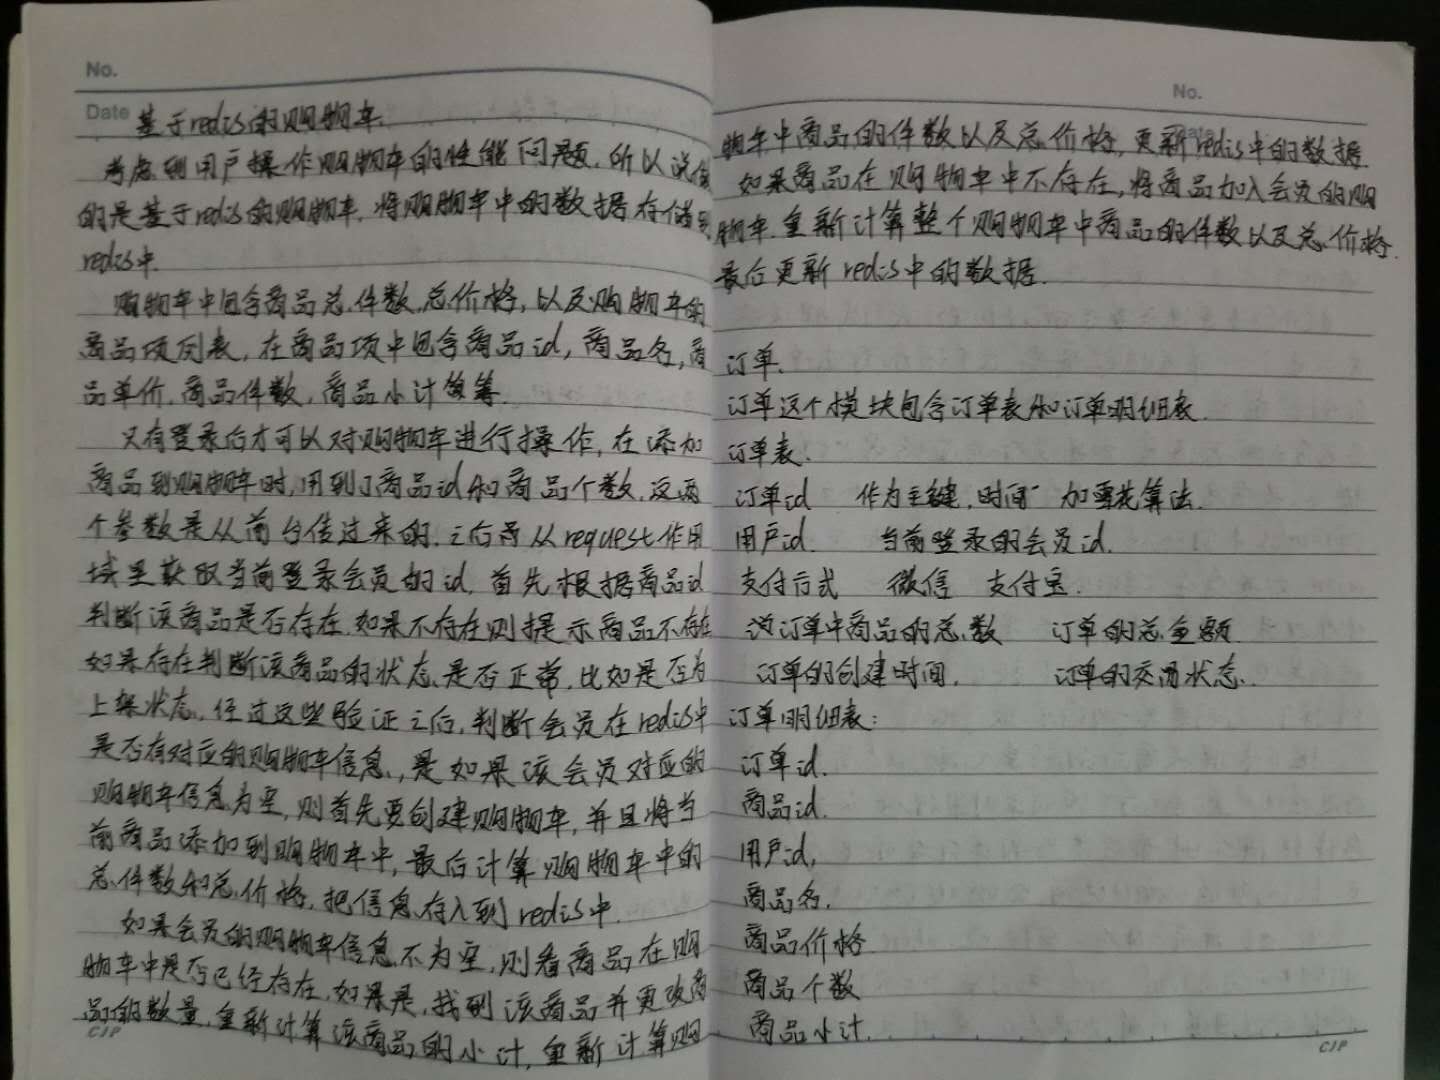 No.
Date 基于redis的购物车.
考虑到用户操作购物车的性能问题.所以说做
的是基于redis的购物车,将购物车中的数据存储到
redis中.
购物车中包含商品总件数,总价格,以及购物车的
商品项列表,在商品项中包含商品id,商品名,商
品单价,商品件数,商品小计等等.
只有登录后才可以对购物车进行操作,在添加
商品到购物车时,用到了商品id和商品个数,这两
个参数是从前台传过来的.之后再从request作用
域里获取当前登录会员的id,首先根据商品id
判断该商品是否存在.如果不存在则提示商品不存在
如果存在判断该商品的状态是否正常,比如是否为
上架状态,经过这些验证之后,判断会员在redis中
是否有对应的购物车信息,是如果该会员对应的
购物车信息为空,则首先要创建购物车,并且将当
前商品添加到购物车中,最后计算购物车中的
总件数和总价格,把信息存入到redis中.
如果会员的购物车信息不为空,则看商品在购
物车中是否已经存在,如果是,找到该商品并更改商
品的数量,重新计算该商品的小计,重新计算购
CJP
No.
物车中商品的件数以及总价格,更新redis中的数据.
如果商品在购物车中不存在,将商品加入会员的购
物车.重新计算整个购物车中商品的件数以及总价格.
最后更新redis中的数据.
订单.
订单这个模块包含订单表和订单明细表.
订单表.
订单id 作为主键,时间 加雪花算法.
用户id. 当前登录的会员id.
支付方式 微信 支付宝.
该订单中商品的总数 订单的总金额.
订单的创建时间. 订单的交易状态.
订单明细表:
订单id.
商品id.
用户id,
商品名.
商品价格
商品个数
商品小计.
CJP